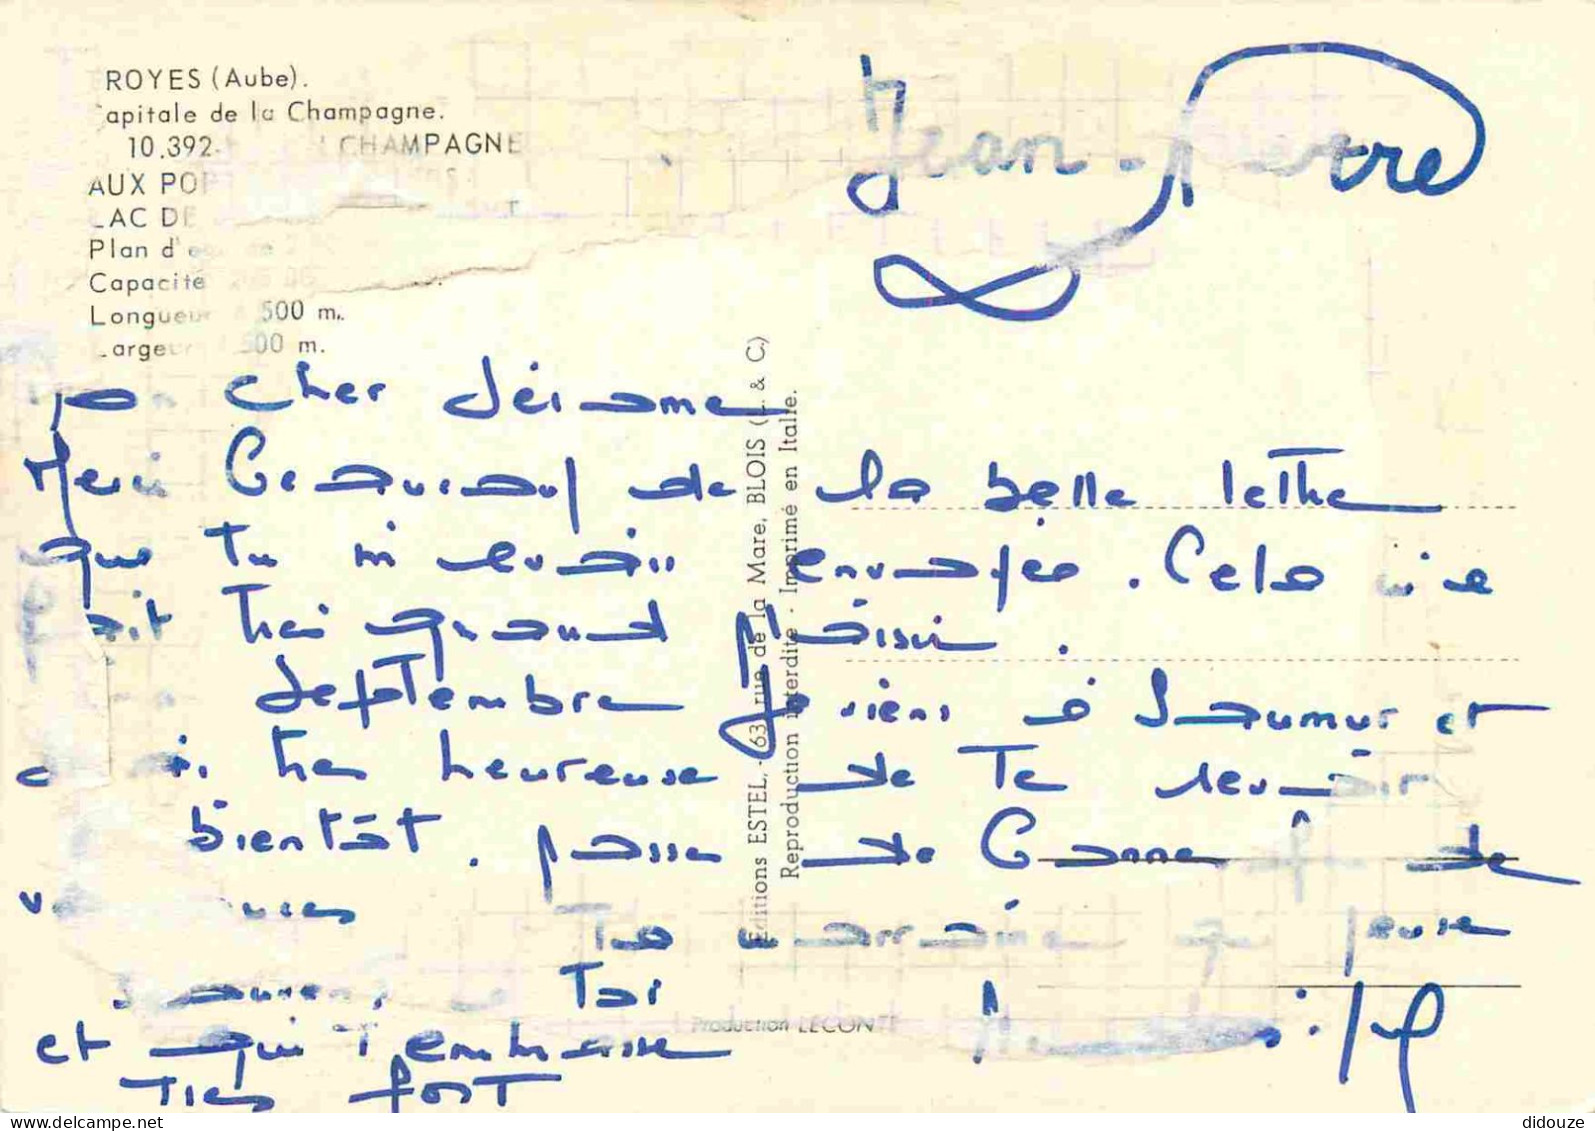 ROYES (Aube).
apitale de la Champagne.
10.392 CHAMPAGNE
AUX POR
LAC DE
Plan d'
Capacité
Longueur 500 m.
Largeur 500 m.
Jean-Pierre
Cher Jérôme
Merci beaucoup de la belle lettre
que tu m'avais envoyée. Cela m'a
fait très grand plaisir.
Septembre je viens à Saumur et
très heureuse de te revoir
bientôt. passe de bonne fin de
vacances
Ta marraine qui pense
souvent à Toi
et qui t'embrasse
très fort
Editions ESTEL, 63, rue de la Mare, BLOIS (L. & C.)
Reproduction interdite - Imprimé en Italie.
Production LECONTE
didouze